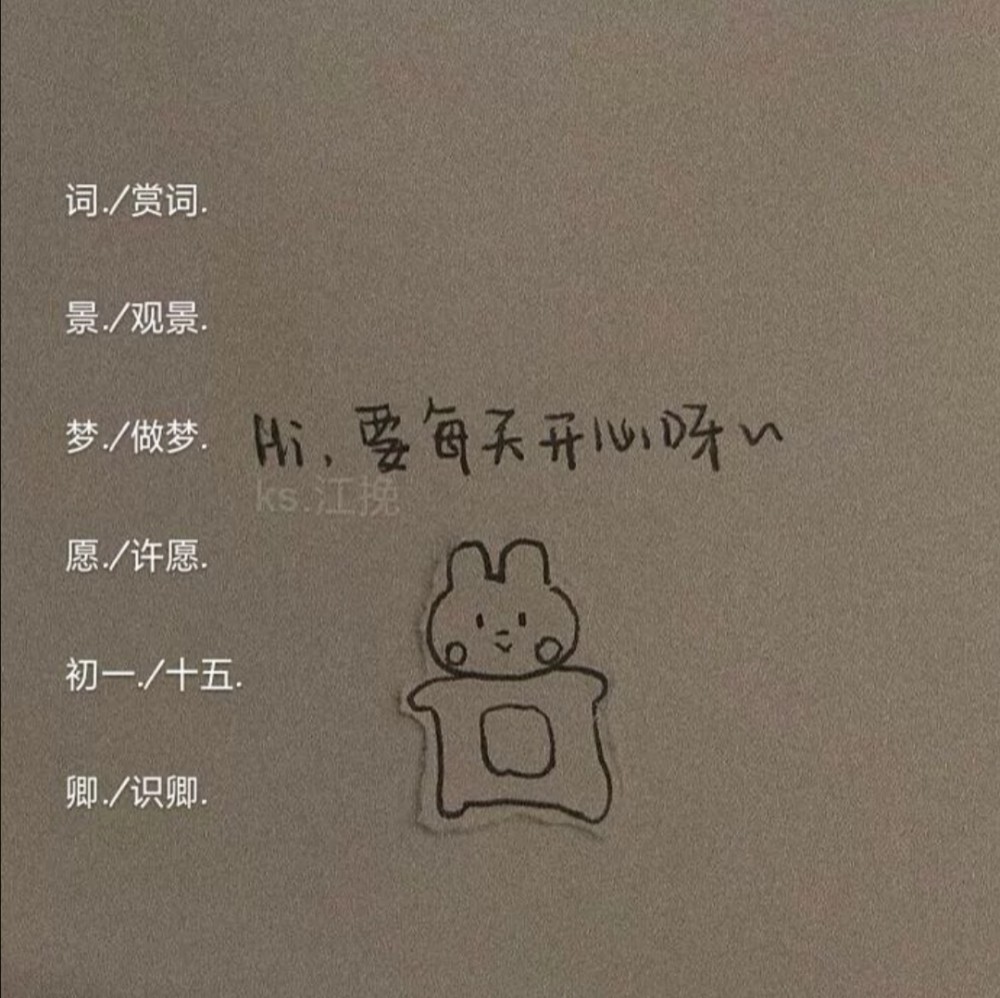 词./赏词.
景./观景.
梦./做梦.
Hi,要每天开心呀~
ks.江挽
愿./许愿.
初一./十五.
卿./识卿.